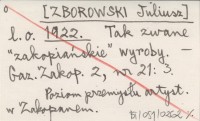 o [ZBOROWSKI Juliusz]
l.o. 1922. Tak zwane
"zakopiańskie" wyroby. –
Gaz. Zakop. 2, nr 21: 3.
Poziom przemysłu artyst.
w Zakopanem.